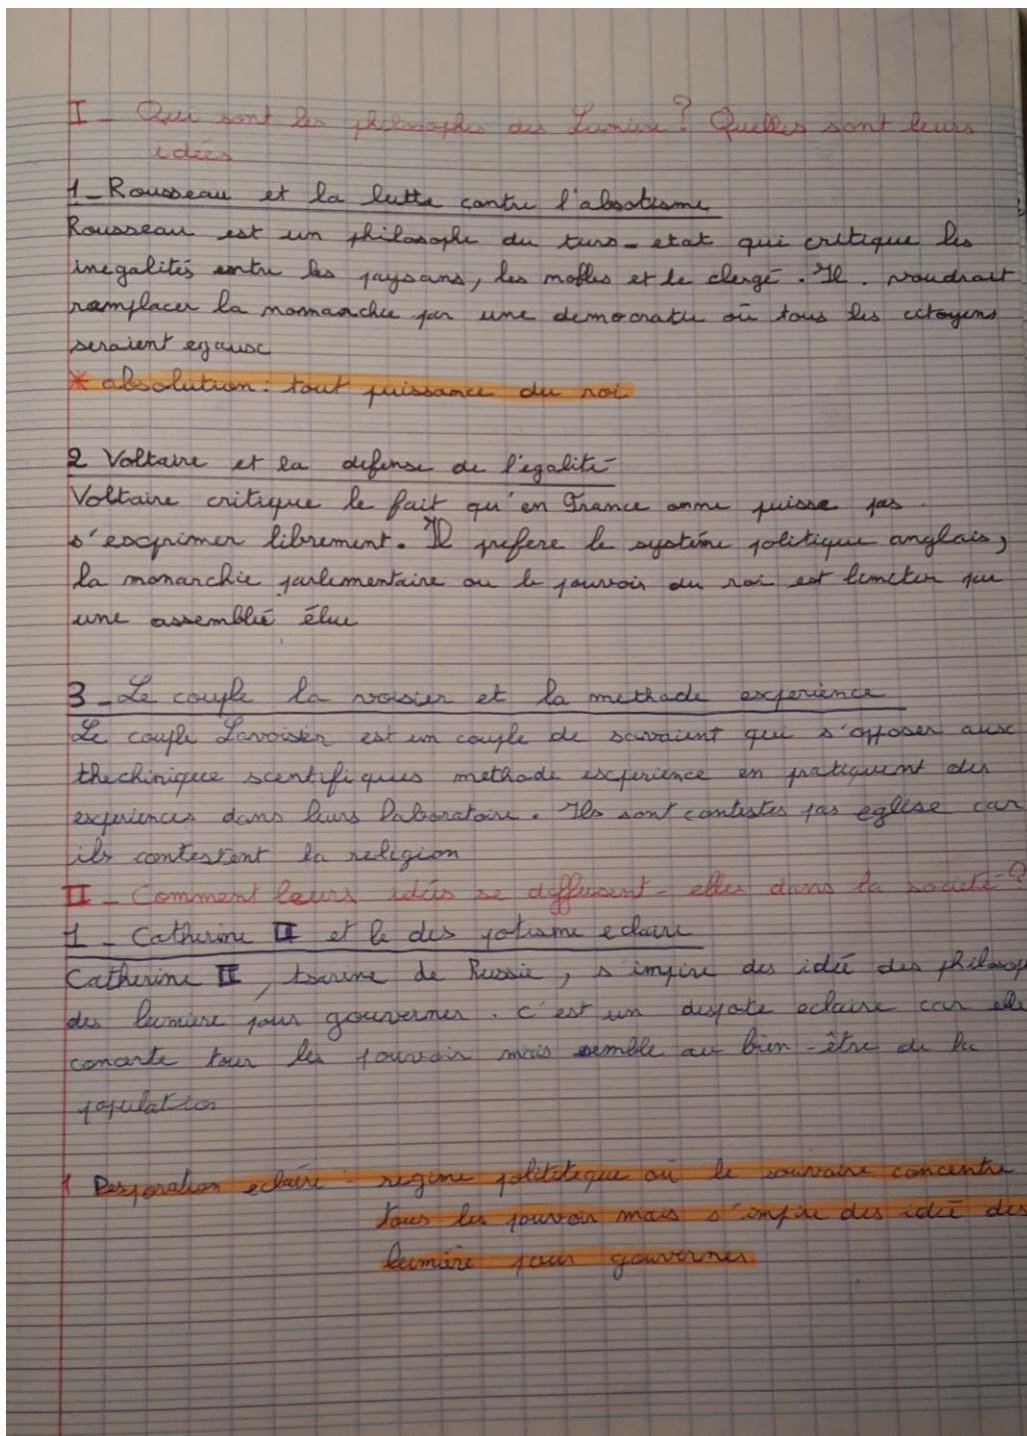 I - Qui sont les philosophes des Lumière? Quelles sont leurs
idées
1 - Rousseau et la lutte contre l'absotisme
Rousseau est un philosophe du turs-etat qui critique les
inegalités entre les paysans, les nobles et le clergé. Il. voudrait
ramplacer la monarchie par une democratie où tous les citoyens
seraient egaux
* absolution: tout puissance du roi
2 Voltaire et la défense de l'égalité
Voltaire critique le fait qu'en France onne puisse pas
s'exprimer librement. Il prefere le système politique anglais,
la monarchie parlementaire ou le pouvoir du roi est limiter par
une assemblée élue
3 - Le couple la voisier et la methade experience
Le couple Lavoisier est un couple de savaient qui s'opposer aux
thechinique scentifiques methode experience en pratiquent des
experiences dans leurs laboratoire. Ils sont contestes pas eglise car
ils contestent la religion
II - Comment leurs idés se diffusent-elles dans la société?
1 - Catherine II et le des potisme eclaire
Catherine II, tsarine de Russie, s'inspire des idée des philosop
des lumière pour gouverner. C'est un despote eclaire car elle
concerte tous les pouvoir mais semble au bien-être de la
population
1 Desporation eclairé - regime polititeque où le souvraire concentre
tous les pouvoir mais s'inspire des idée des
lumière pour gouverner